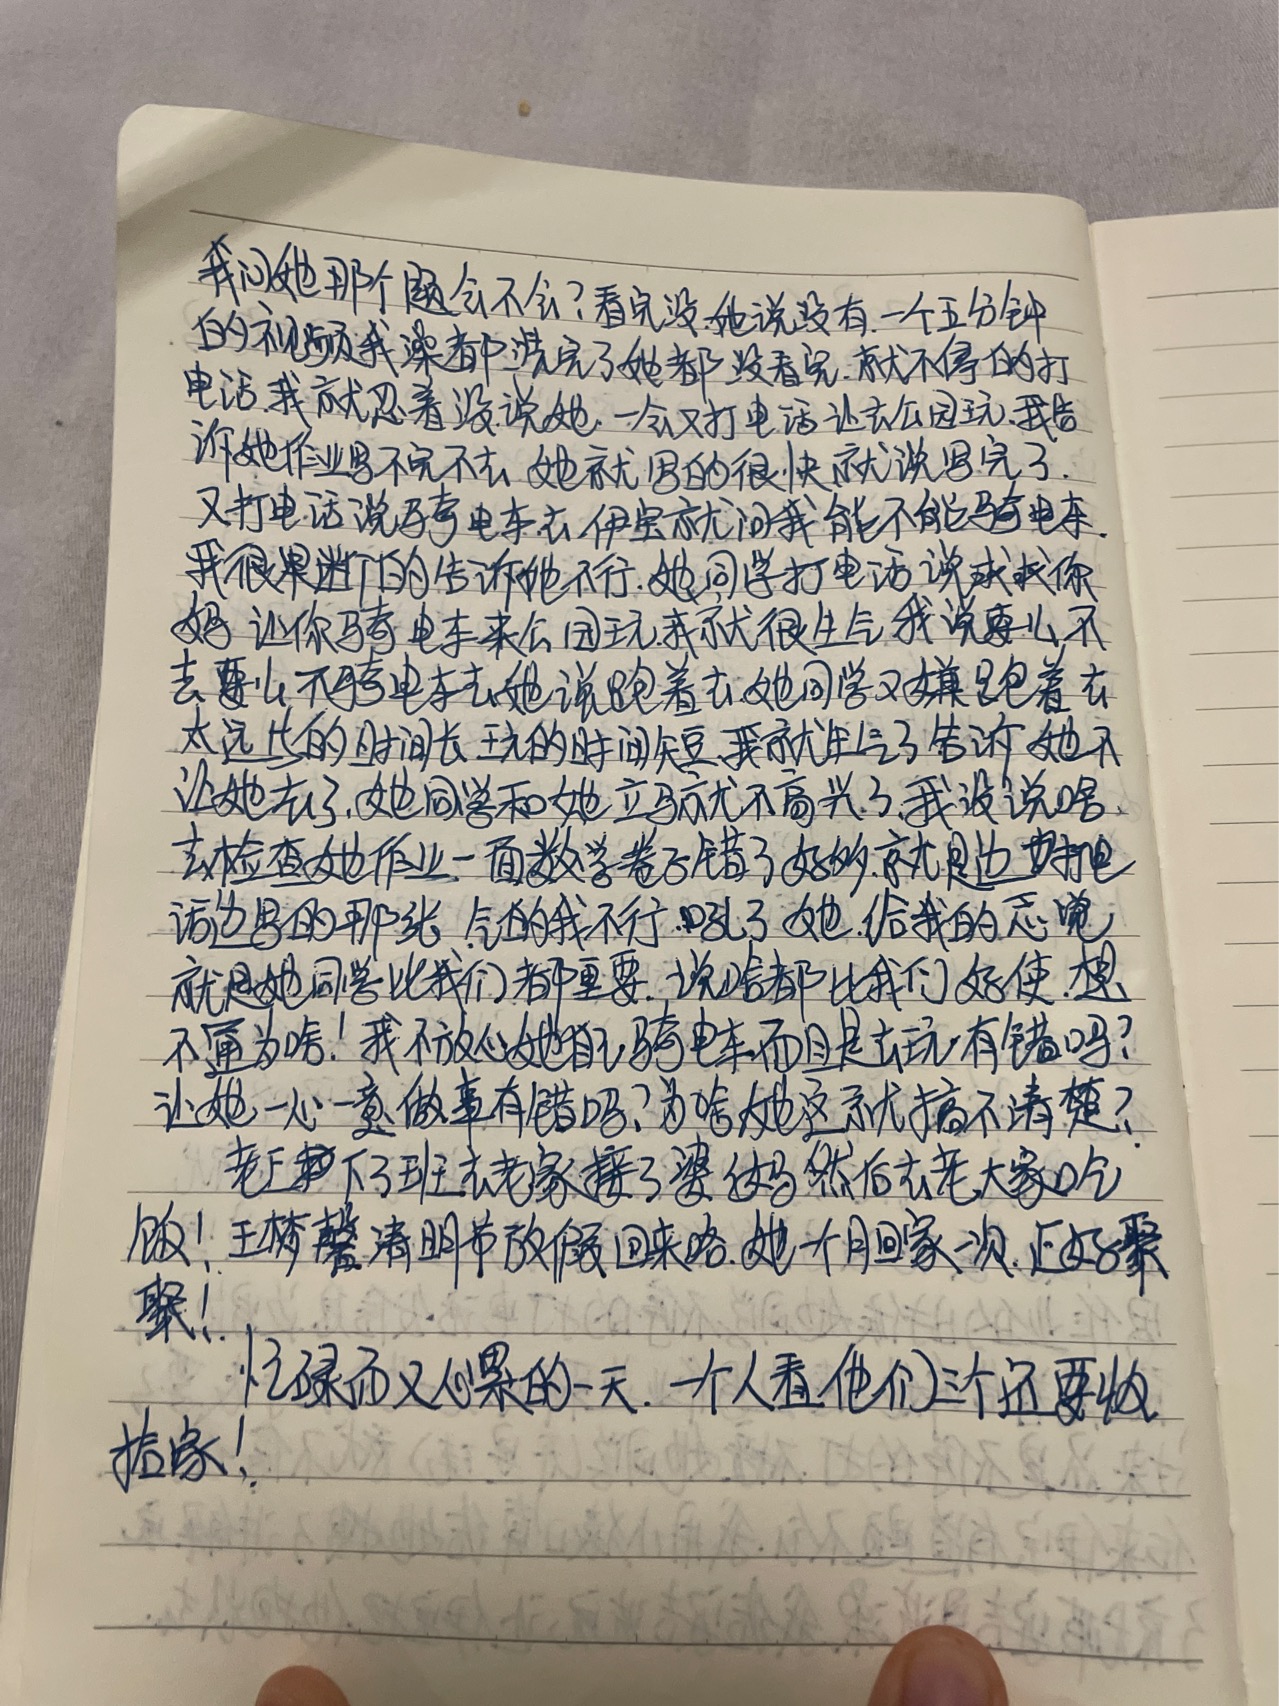 我问她那个题会不会？看完没.她说没有.一个五分钟
的视频我澡都洗完了她都没看完.就不停的打
电话.我就忍着没说她.一会又打电话让去公园玩.我告
诉她作业写不完不去.她就写的很快就说写完了.
又打电话说骑电车去.伊宝就问我能不能骑电车.
我很果断的告诉她不行.她同学打电话说求求你
妈让你骑电车来公园玩.我就很生气.我说要么不
去要么不骑电车去.她说跑着去.她同学又嫌跑着去
太远.去的时间长玩的时间短.我就生气了告诉她不
让她去了.她同学和她立马就不高兴了.我没说啥.
去检查她作业.一面数学卷子错了好多.就是边打电
话边写的那张.气的我不行.吼了她.给我的感觉
就是她同学比我们都重要.说啥都比我们好使.想
不通为啥！我不放心她自己骑电车.而且是去玩.有错吗？
让她一心一意做事有错吗？为啥她这就搞不清楚？
老王下了班去老家接了婆婆妈然后去老大家吃
饭！王梦馨清明节放假回来咯.她一个月回家一次.正好聚
聚！
忙碌而又心累的一天.一个人看他们三个还要收
拾家！